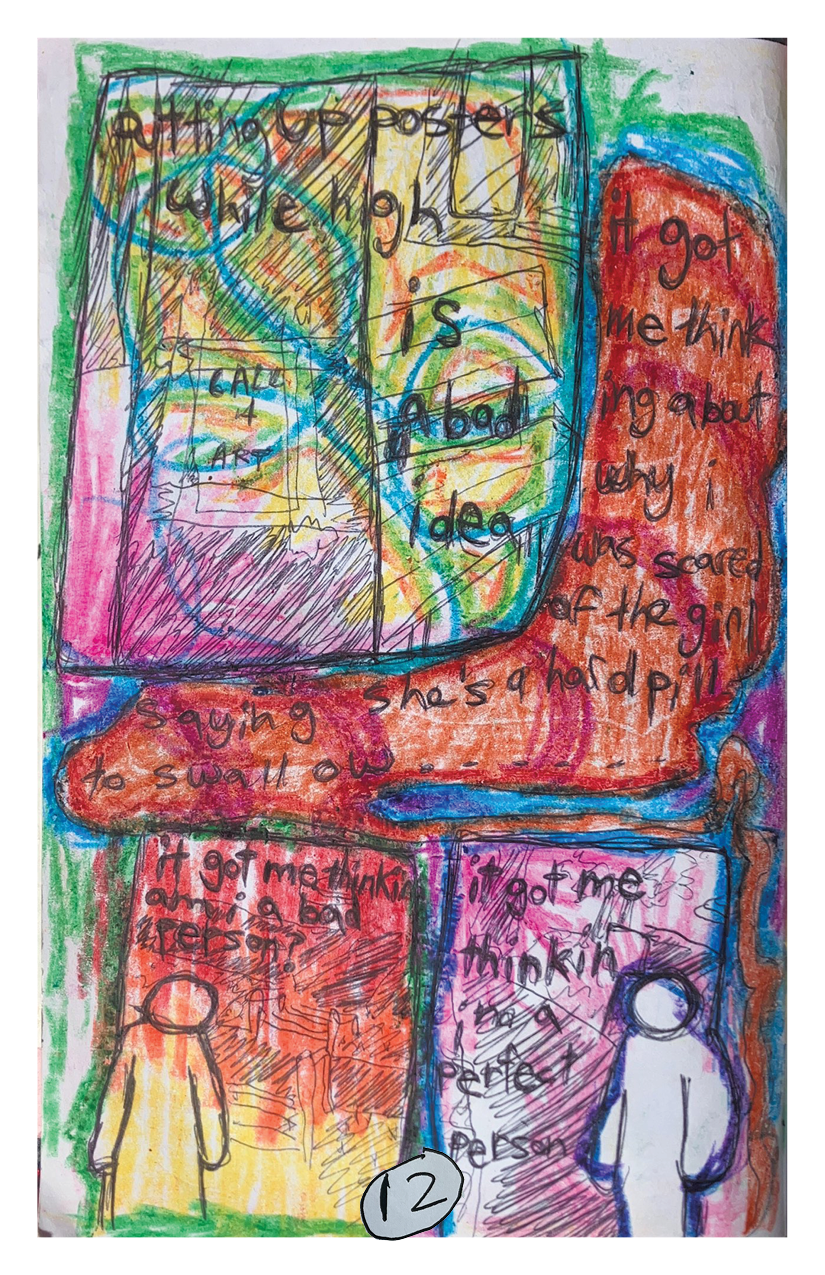 putting up posters
while high
is
A bad
idea
CALL
4
ART
it got
me think
ing about
why i
was scared
of the girl
saying she's a hard pill
to swallow
it got me thinkin
am i a bad
person?
it got me
thinkin
im a
perfect
person
12